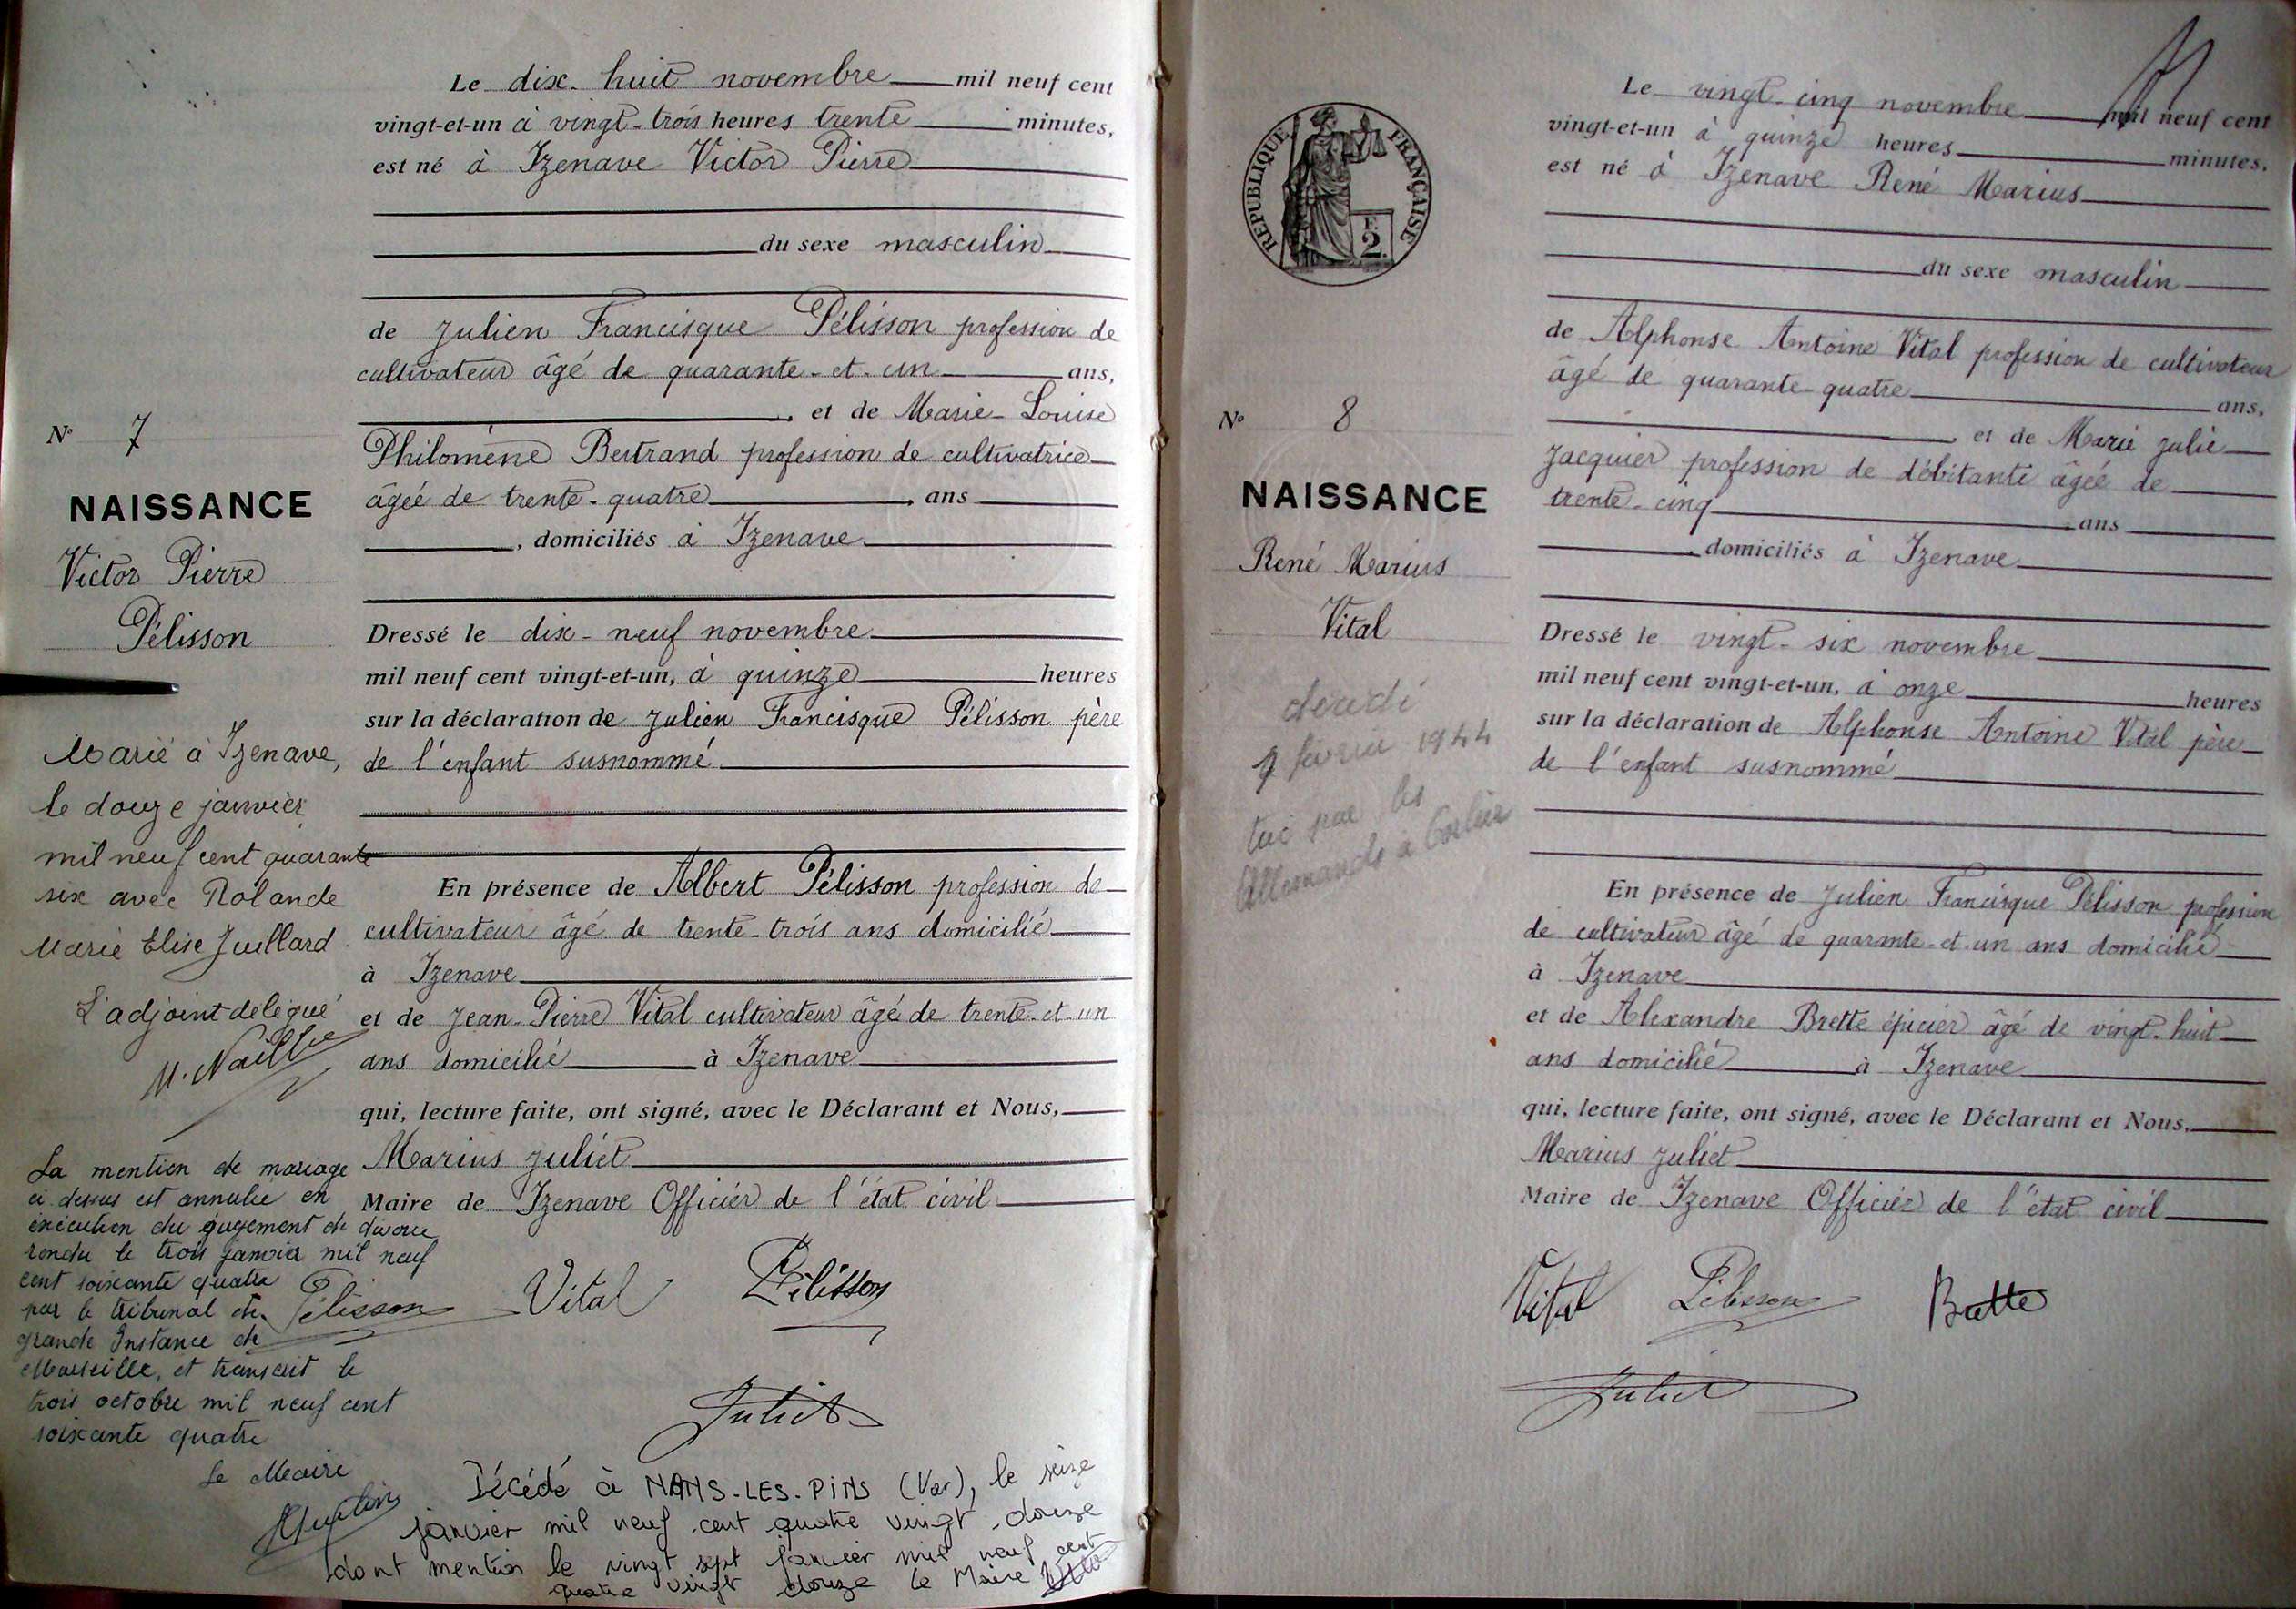 Le dix-huit novembre mil neuf cent
vingt-et-un à vingt-trois heures trente minutes,
est né à Izenave Victor Pierre
du sexe masculin
de Julien Francisque Pélisson profession de
cultivateur âgé de quarante-et-un ans,
, et de Marie-Louise
Philomène Bertrand profession de cultivatrice
âgée de trente-quatre, ans
, domiciliés à Izenave
Dressé le dix-neuf novembre
mil neuf cent vingt-et-un, à quinze heures
sur la déclaration de Julien Francisque Pélisson père
de l'enfant susnommé
En présence de Albert Pélisson profession de
cultivateur âgé de trente-trois ans domicilié
à Izenave
et de Jean-Pierre Vital cultivateur âgé de trente-et-un
ans domicilié à Izenave
qui, lecture faite, ont signé, avec le Déclarant et Nous,
Marius Juliet
Maire de Izenave Officier de l'état civil
Pélisson Vital Pélisson
Juliet
N° 7
NAISSANCE
Victor Pierre
Pélisson
Marié à Izenave,
le douze janvier
mil neuf cent quarante
six avec Rolande
Marie Elise Juillard
L'adjoint délégué
La mention de mariage
ci dessus est annulée en
exécution du jugement de divorce
rendu le trois janvier mil neuf
cent soixante quatre
par le tribunal de
grande Instance de
Marseille, et transcrit le
trois octobre mil neuf cent
soixante quatre
Le Maire
Décédé à NANS-LES-PINS (Var), le seize
janvier mil neuf cent quatre vingt douze
dont mention le vingt sept janvier mil neuf cent
quatre vingt douze le Maire
REPUBLIQUE FRANÇAISE
F.
2.
Le vingt-cinq novembre mil neuf cent
vingt-et-un à quinze heures minutes.
est né à Izenave René Marius
du sexe masculin
de Alphonse Antoine Vital profession de cultivateur
âgé de quarante-quatre ans.
, et de Marie Julie
Jacquier profession de débitante âgée de
trente-cinq ans
, domiciliés à Izenave
Dressé le vingt-six novembre
mil neuf cent vingt-et-un, à onze heures
sur la déclaration de Alphonse Antoine Vital père
de l'enfant susnommé
En présence de Julien Francisque Pélisson profession
de cultivateur âgé de quarante-et-un ans domicilié
à Izenave
et de Alexandre Brette épicier âgé de vingt-huit
ans domicilié à Izenave
qui, lecture faite, ont signé, avec le Déclarant et Nous,
Marius Juliet
Maire de Izenave Officier de l'état civil
Vital Pélisson Brette
Juliet
N° 8
NAISSANCE
René Marius
Vital
décédé
février 1944
tué par les
Allemands à Corlier